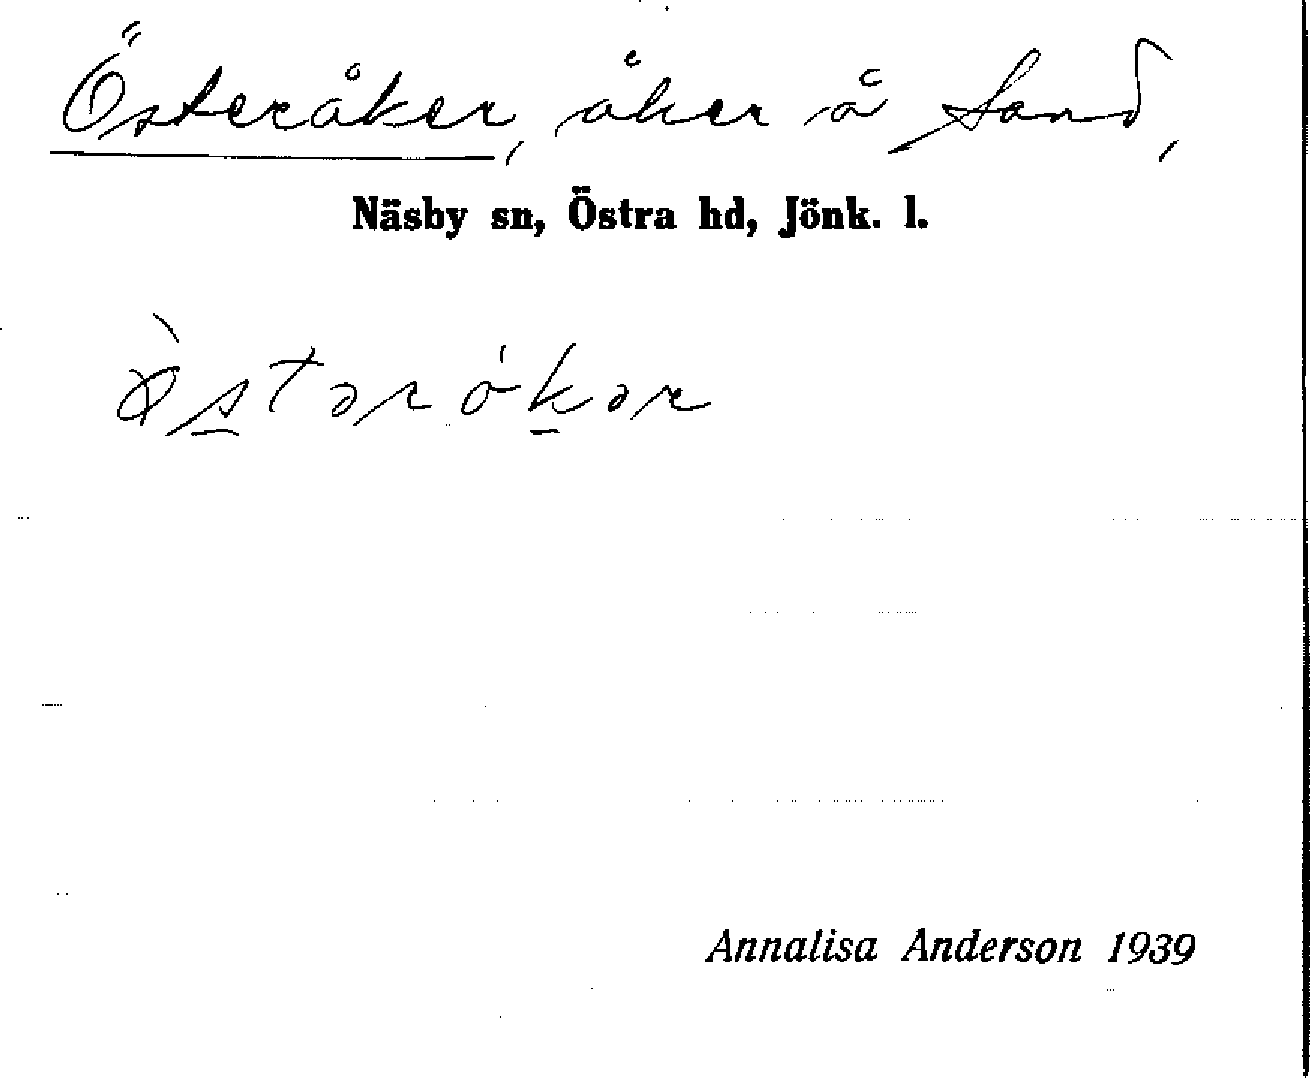 Österåker, åker å Sand,
Näsby sn, Östra hd, Jönk. l.
ø̀stərókər
Annalisa Anderson 1939